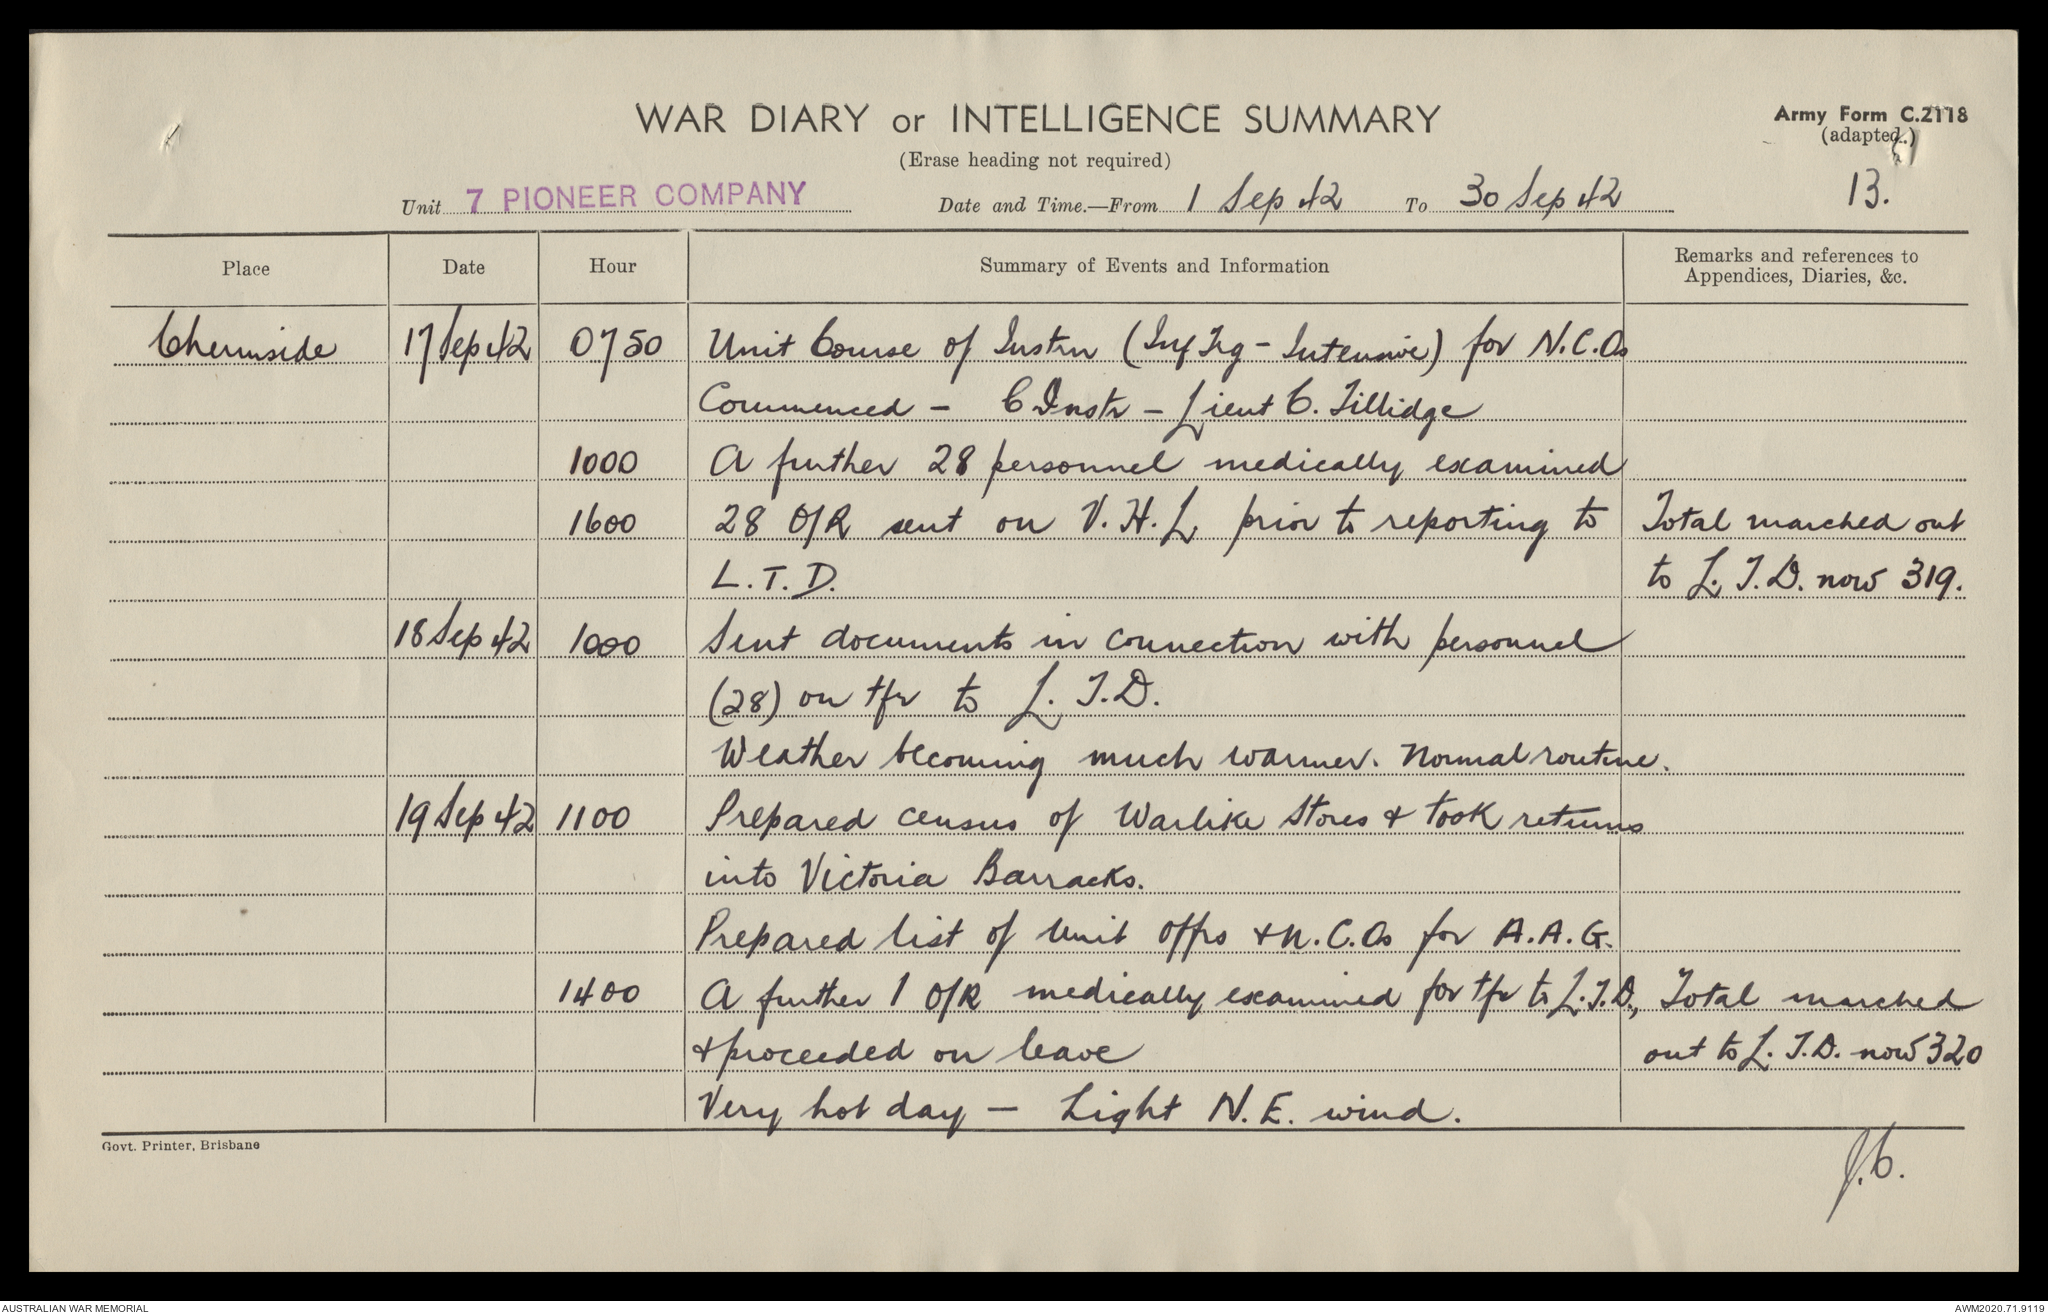 WAR DIARY or INTELLIGENCE SUMMARY
(Erase heading not required)
Army Form C.2118
(adapted.)
13.
Unit 7 PIONEER COMPANY Date and Time.—From 1 Sep 42 To 30 Sep 42
Place Date Hour Summary of Events and Information Remarks and references to
Appendices, Diaries, &c.
Chermside 17 Sep 42 0750 Unit Course of Instrn (Inf Trg - Intensive) for N.C.Os
Commenced - C Instr - Lieut C. Tillidge
1000 A further 28 personnel medically examined
1600 28 O/R sent on V.H.L prior to reporting to Total marched out
L.T.D. to L.T.D. now 319.
18 Sep 42 1000 Sent documents in connection with personnel
(28) on tfr to L.T.D.
Weather becoming much warmer. Normal routine.
19 Sep 42 1100 Prepared census of Warlike Stores & took returns
into Victoria Barracks.
Prepared list of Unit offrs & N.C.Os for A.A.G.
1400 A further 1 O/R medically examined for tfr to L.T.D., Total marched
& proceeded on leave out to L.T.D. now 320
Very hot day - Light N.E. wind.
Govt. Printer, Brisbane
J.C.
AUSTRALIAN WAR MEMORIAL AWM2020.71.9119